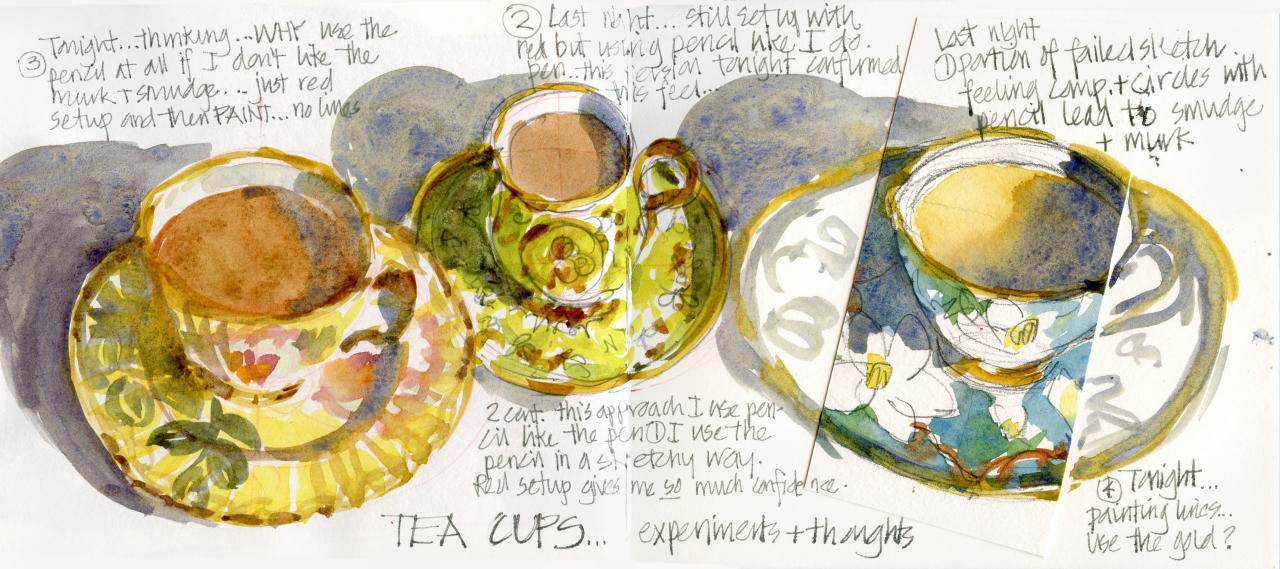 ③ Tonight...thinking...WHY use the
pencil at all if I don't like the
murk + smudge... just red
setup and then PAINT... no lines
② Last night... still setup with
red but using pencil like I do.
pen...this version tonight confirmed
this feel...
Last night
① portion of failed sketch
feeling comp. + circles with
pencil lead to smudge
+ murk
2 cont. this approach I use pen-
cil like the pen ① I use the
pencil in a sketchy way.
Red setup gives me so much confidence.
④ Tonight...
painting lines...
use the gold?
TEA CUPS... experiments + thoughts